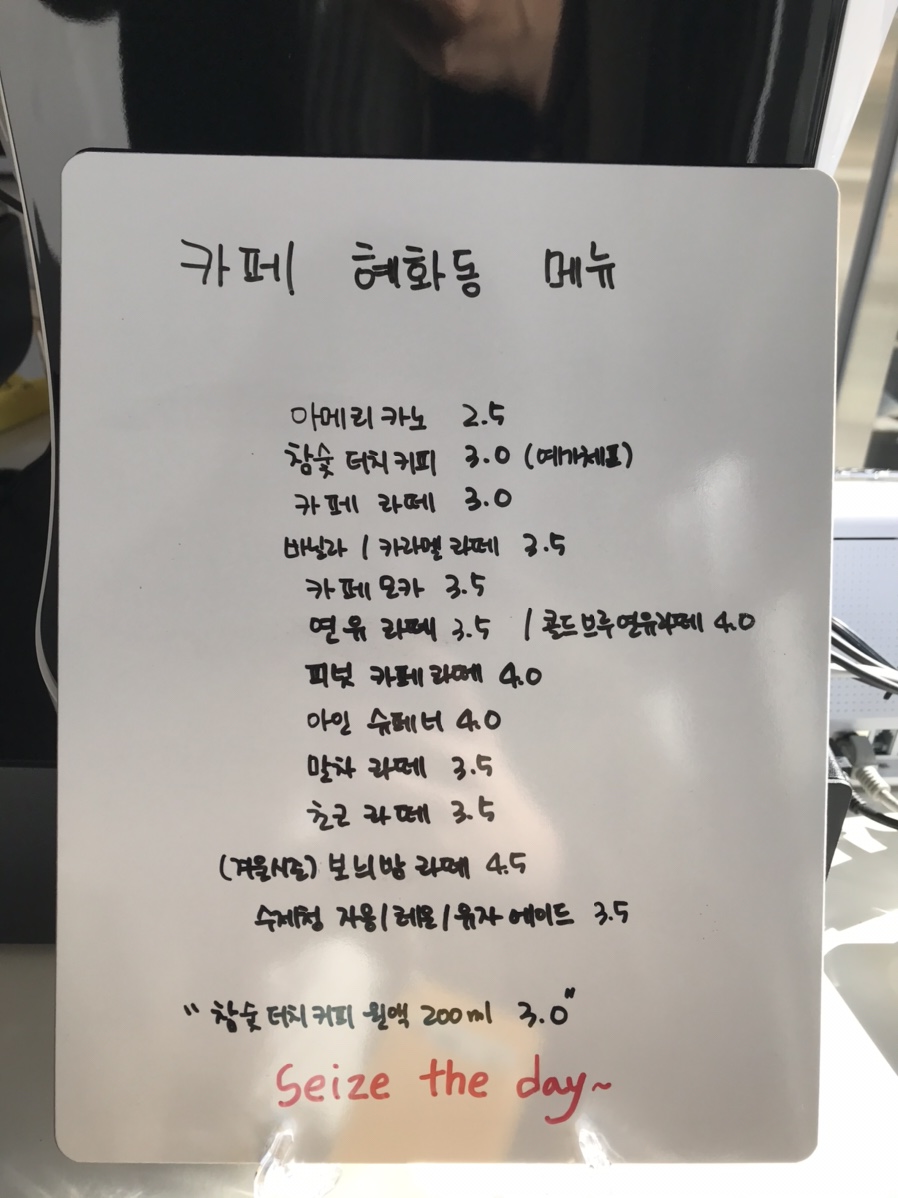 카페 혜화동 메뉴
아메리카노 2.5
참숯 터치커피 3.0 (예가체프)
카페 라떼 3.0
바닐라 / 카라멜 라떼 3.5
카페모카 3.5
연유 라떼 3.5 / 콜드브루연유라떼 4.0
피넛 카페라떼 4.0
아인 슈페너 4.0
말차 라떼 3.5
초코 라떼 3.5
(겨울시즌) 보늬밤 라떼 4.5
수제청 자몽/레몬/유자 에이드 3.5
"참숯 터치커피 원액 200ml 3.0"
Seize the day~